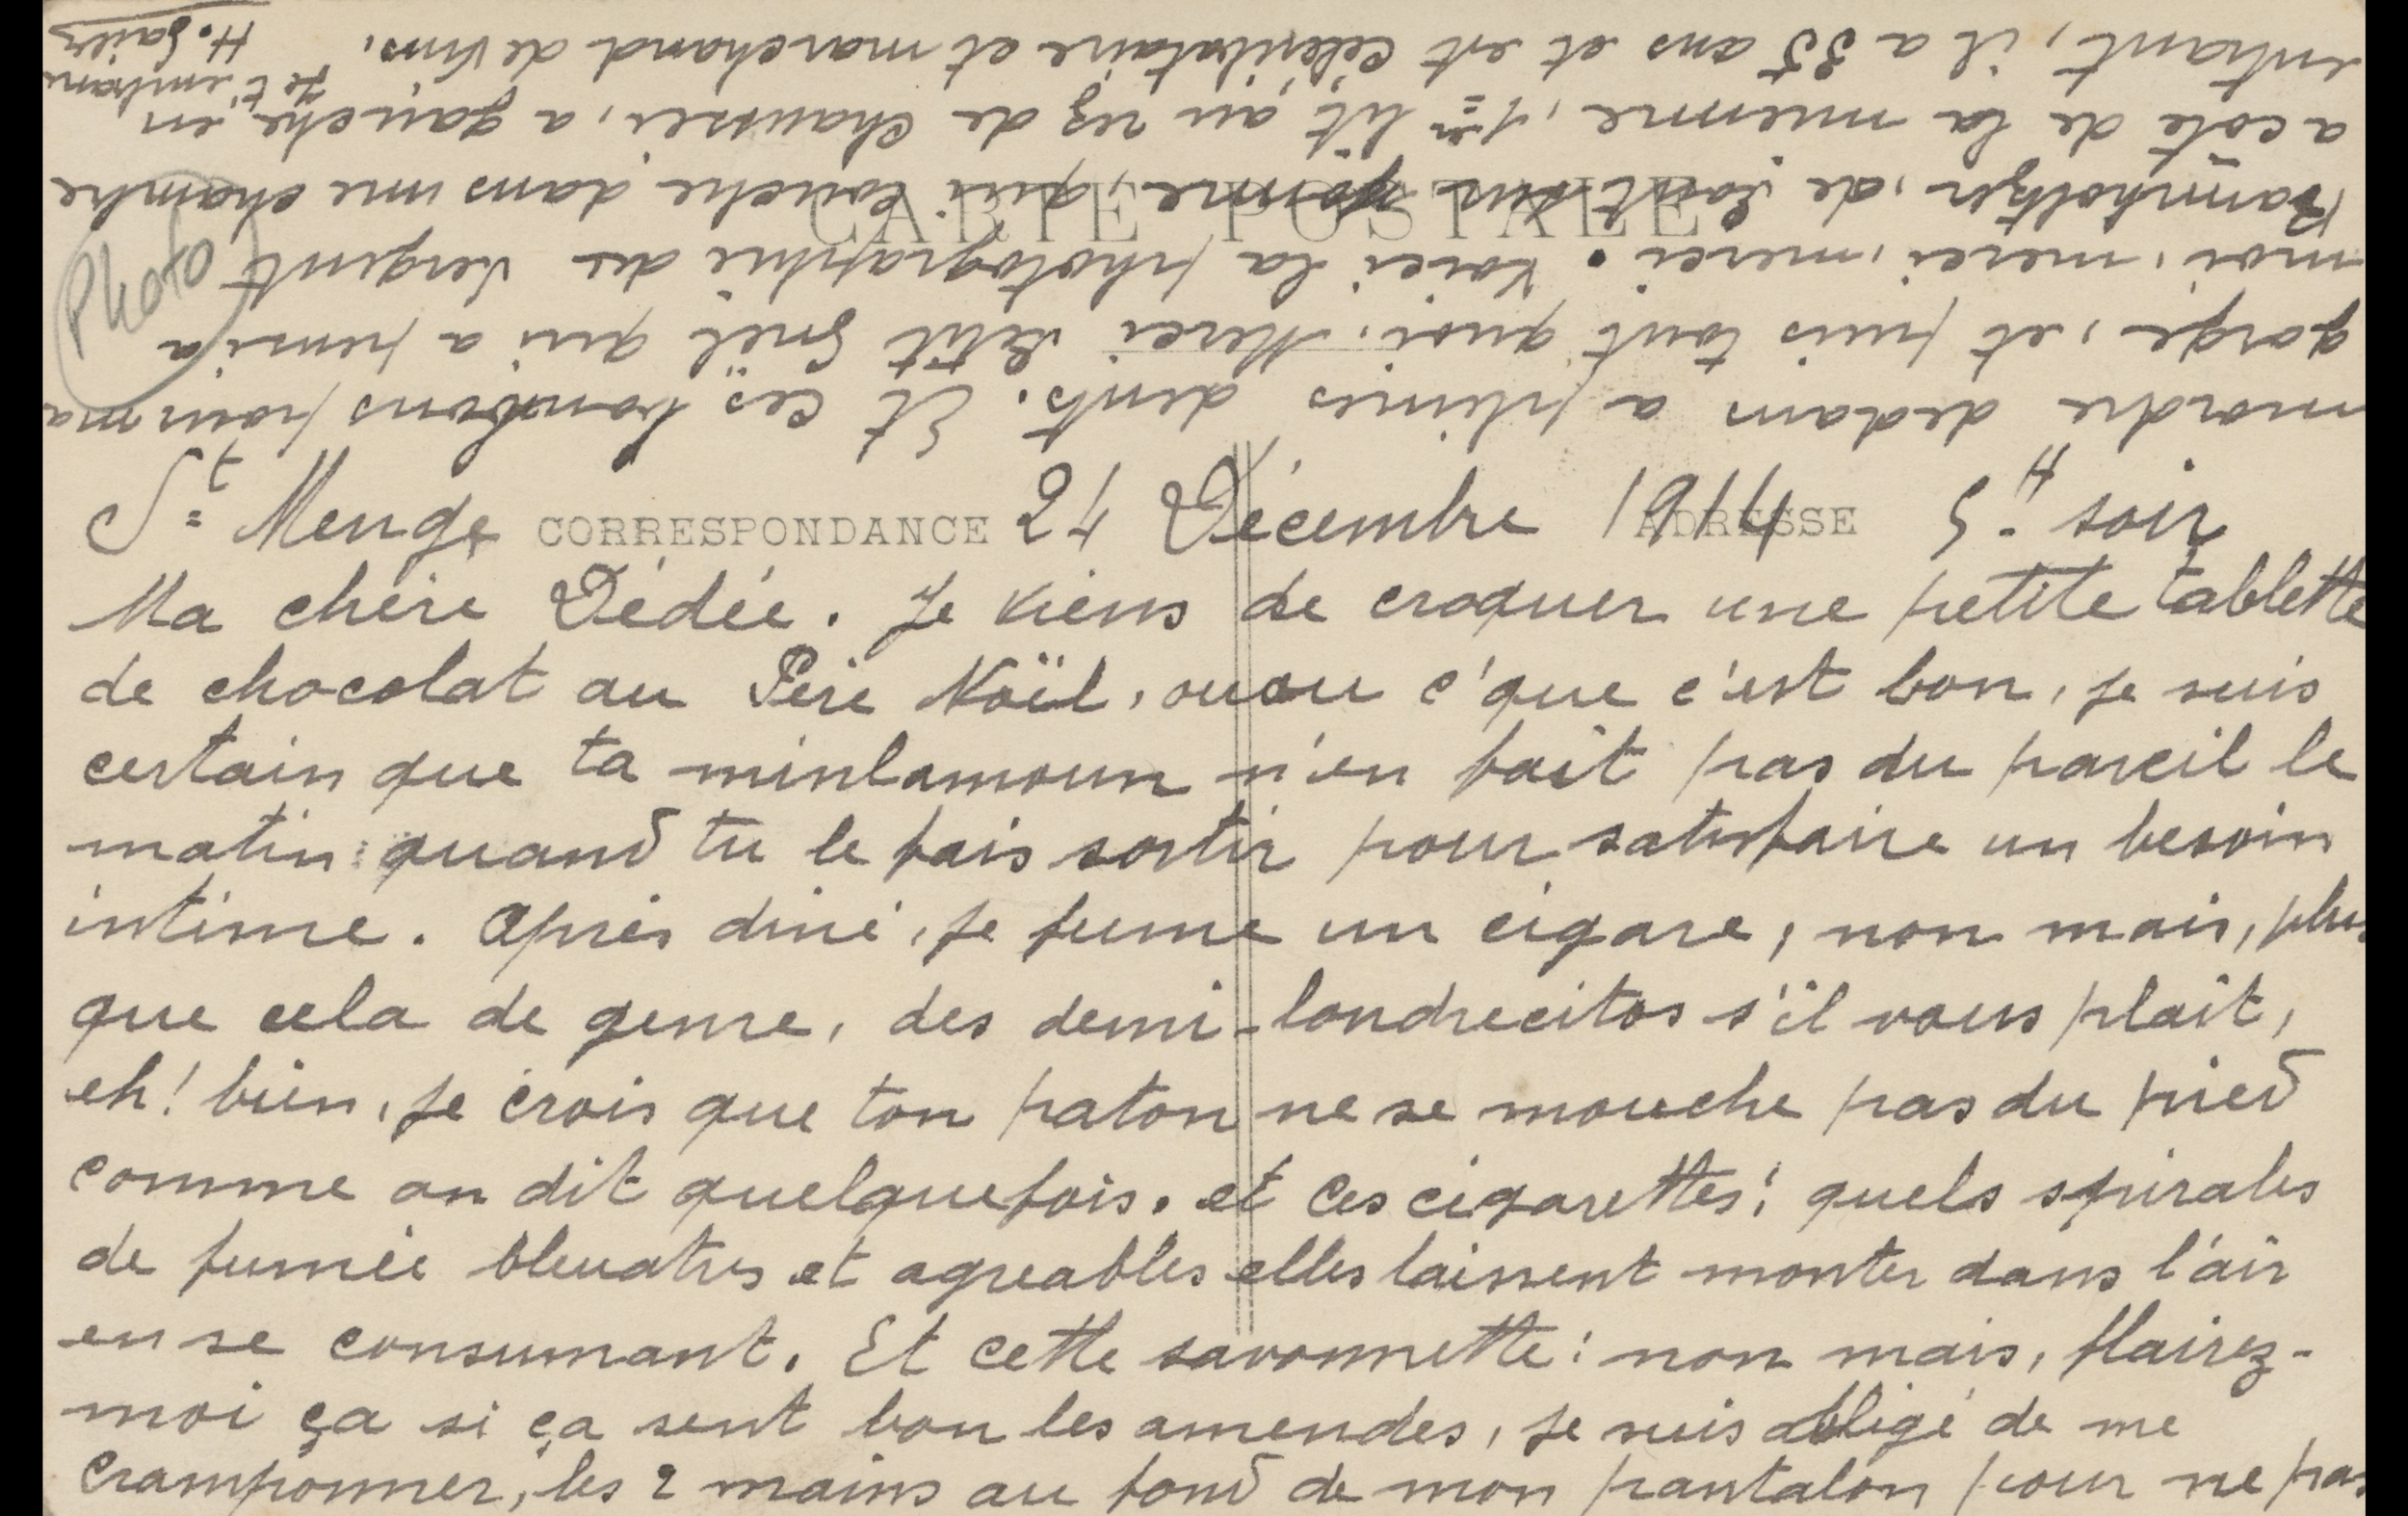 CARTE POSTALE
CORRESPONDANCE
ADRESSE
Photo
St Menge 27 Décembre 1914 5H soir
Ma chère Dédée. Je viens de croquer une petite tablette
de chocolat au Père Noël, ouou c'que c'est bon, je suis
certain que ta minlamoun n'en fait pas du pareil le
matin quand tu le fais sortir pour satisfaire un besoin
intime. Après diné, je fume un cigare, non mais, plus
que cela de genre, des demi-londrecitos s'il vous plait,
eh! bien, je crois que ton paton ne se mouche pas du pied
comme on dit quelquefois. et ces cigarettes! quels spirales
de fumée bleuatres et agreables elles laissent monter dans l'air
en se consumant. Et cette savonnette! non mais, flairez-
moi ça si ça sent bon les amendes, je suis obligé de me
cramponner, les 2 mains au fond de mon pantalon pour ne pas
mordre dedans a pleines dents. Et ces bonbons pour ma
gorge, et puis tout quoi. Merci Petit Noël qui a pensé a
moi, merci, merci. Voici la photographie du sergent
de qui couche dans une chambre
a coté de la mienne, 1er lit au rez de chaussei, a gauche, en
entrant, il a 35 ans et est Célibataire et marchand de Vins.
Je t'embrasse